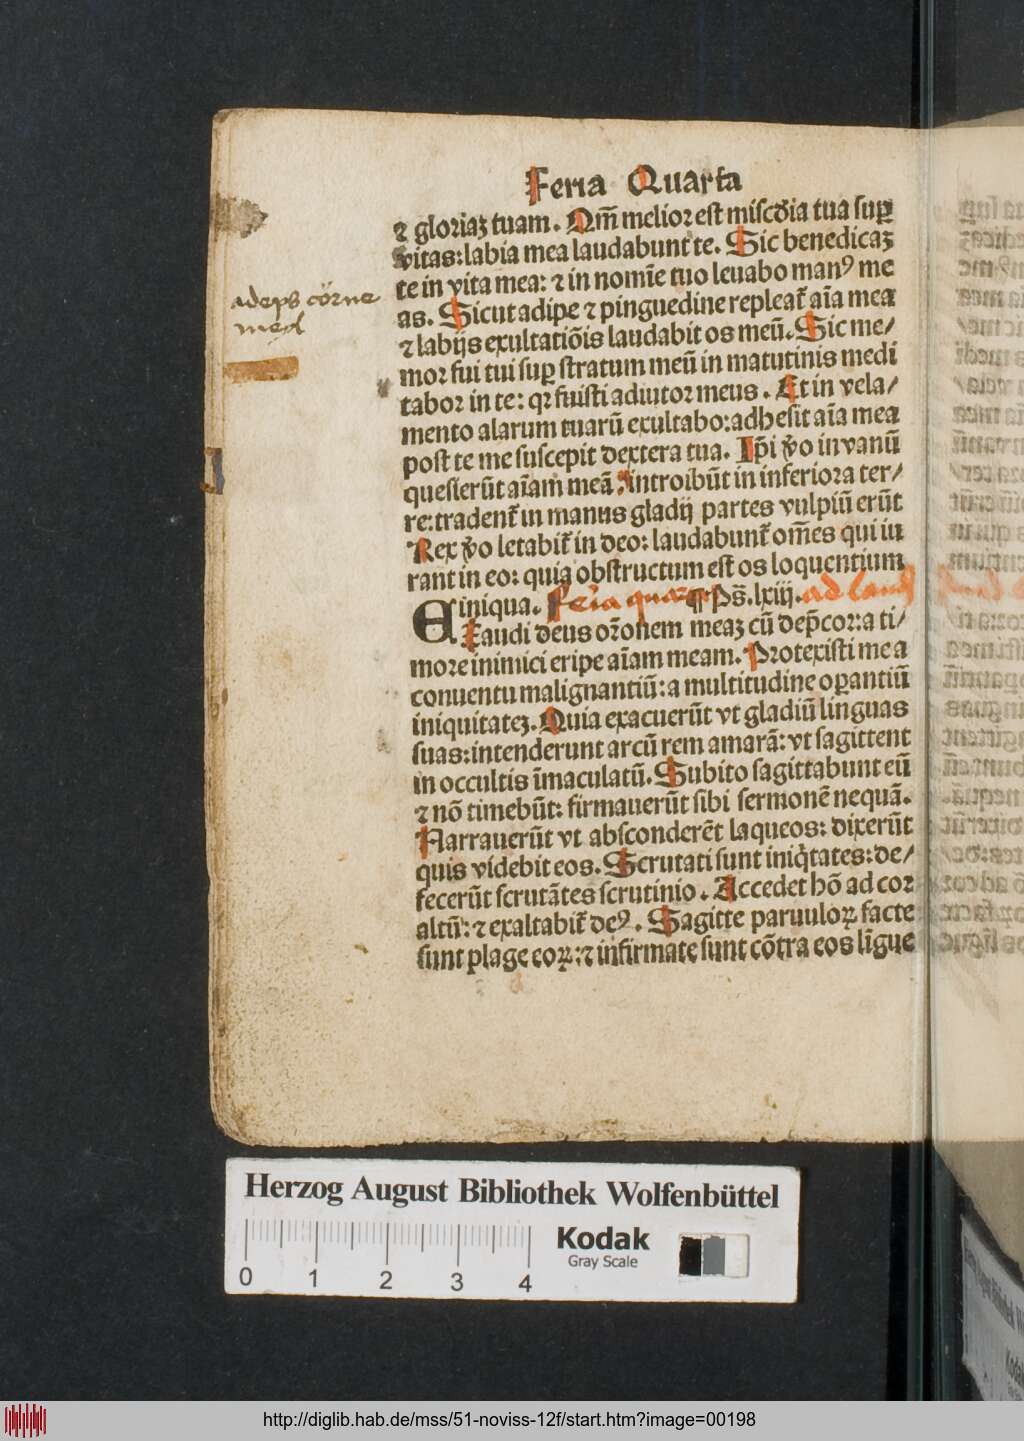 Feria Quarta
⁊ gloriaꝫ tuam. Qm̄ melior est misc̄dia tua suꝑ
vitas: labia mea laudabunt te. Sic benedicaꝫ
te in vita mea: ⁊ in nomīe tuo leuabo manꝰ me
as. Sicut adipe ⁊ pinguedine repleat̄ aīa mea
adeps corne
med
⁊ labijs exultatiōis laudabit os meū. Sic me/
mor fui tui suꝑ stratum meū in matutinis medi
tabor in te: qꝛ fuisti adiutor meus. Et in vela/
mento alarum tuarū exultabo: adhesit aīa mea
post te me suscepit dextera tua. Ip̄i v̄o in vanū
quesierūt aīam meā introibūt in inferiora ter/
re: tradent̄ in manus gladij partes vulpiū erūt
Rex v̄o letabit̄ in deo: laudabunt̄ om̄es qui iu
rant in eo: quia obstructum est os loquentium
iniqua. feria quarta ¶ Ps̄. lxiij. ad laud
Exaudi deus or̄onem meaꝫ cū dep̄cor: a ti/
more inimici eripe aīam meam. Protexisti me a
conuentu malignantiū: a multitudine oꝑantiū
iniquitateꝫ. Quia exacuerūt vt gladiū linguas
suas: intenderunt arcū rem amarā: vt sagittent
in occultis īmaculatū. Subito sagittabunt eū
⁊ nō timebūt: firmauerūt sibi sermonē nequā.
Narrauerūt vt absconderēt laqueos: dixerūt
quis videbit eos. Scrutati sunt iniq̇tates: de/
fecerūt scrutātes scrutinio. Accedet hō ad cor
altū: ⁊ exaltabit̄ deꝰ. Sagitte paruuloꝝ facte
sunt plage eoꝝ: ⁊ infirmate sunt cōtra eos līgue
Herzog August Bibliothek Wolfenbüttel
Kodak
Gray Scale
0 1 2 3 4
http://diglib.hab.de/mss/51-noviss-12f/start.htm?image=00198